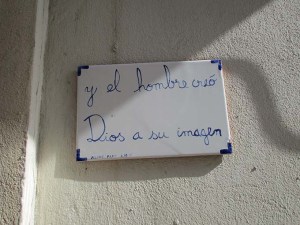 y el hombre creó
Dios a su imagen